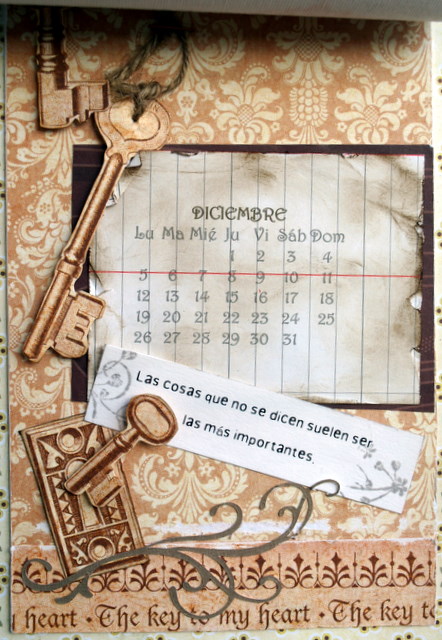 DICIEMBRE
Lu Ma Mié Ju Vi Sáb Dom
1 2 3 4
5 6 7 8 9 10 11
12 13 14 15 16 17 18
19 20 21 22 23 24 25
26 27 28 29 30 31
Las cosas que no se dicen suelen ser
las más importantes.
my heart • The key to my heart • The key to